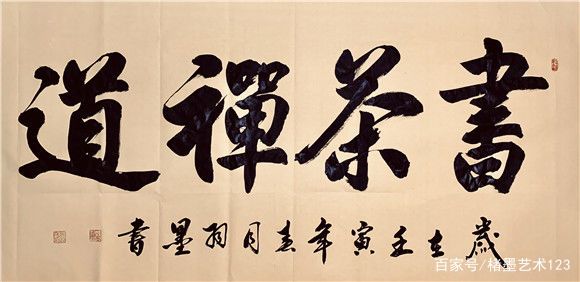 書茶禪道
歲在壬寅年春月羽墨書
百家号/楮墨艺术123